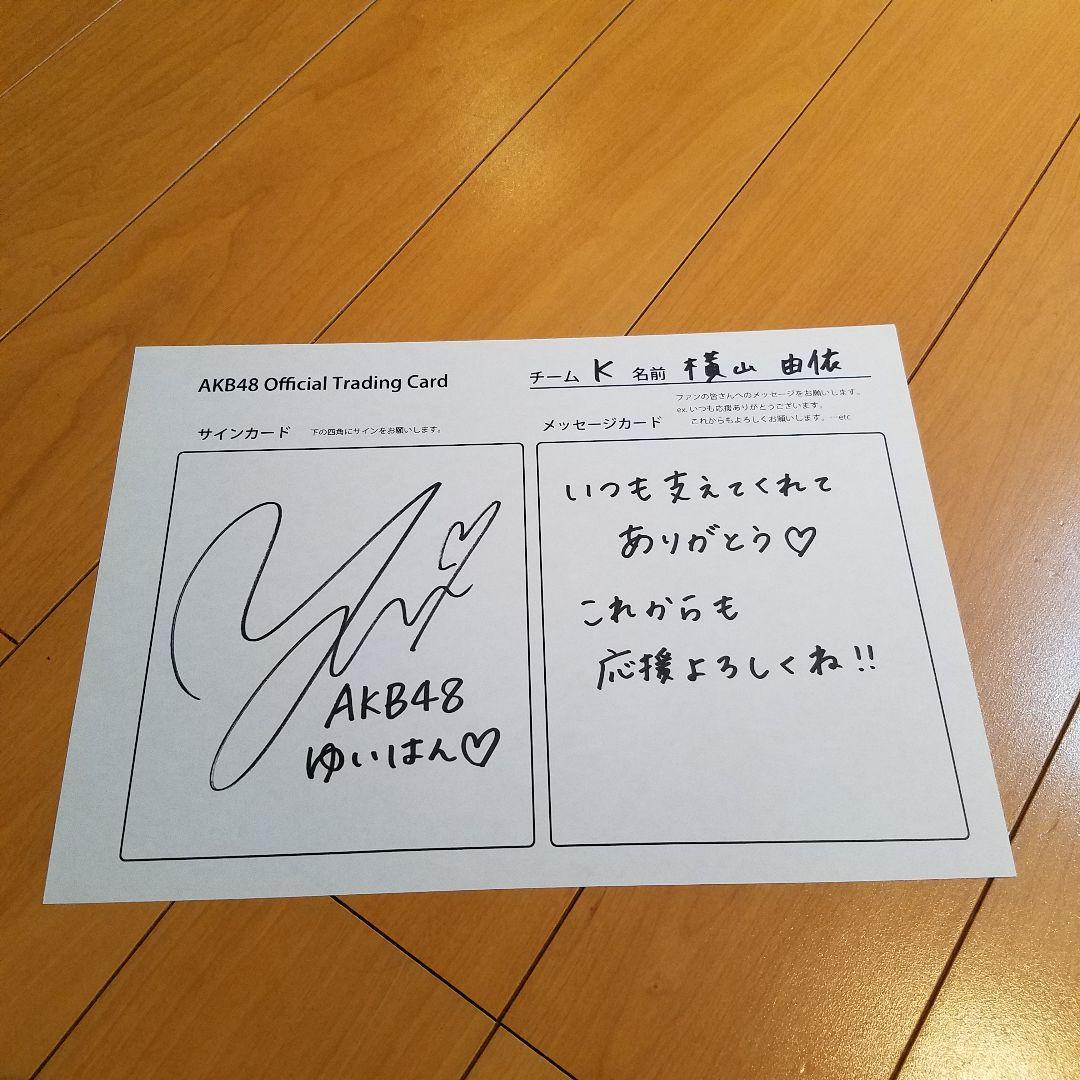 AKB48 Official Trading Card
チーム K 名前 横山 由依
ファンの皆さんへのメッセージをお願いします。
ex. いつも応援ありがとうございます。
これからもよろしくお願いします。…etc
サインカード 下の四角にサインをお願いします。
AKB48
ゆいはん♡
メッセージカード
いつも支えてくれて
ありがとう♡
これからも
応援よろしくね!!